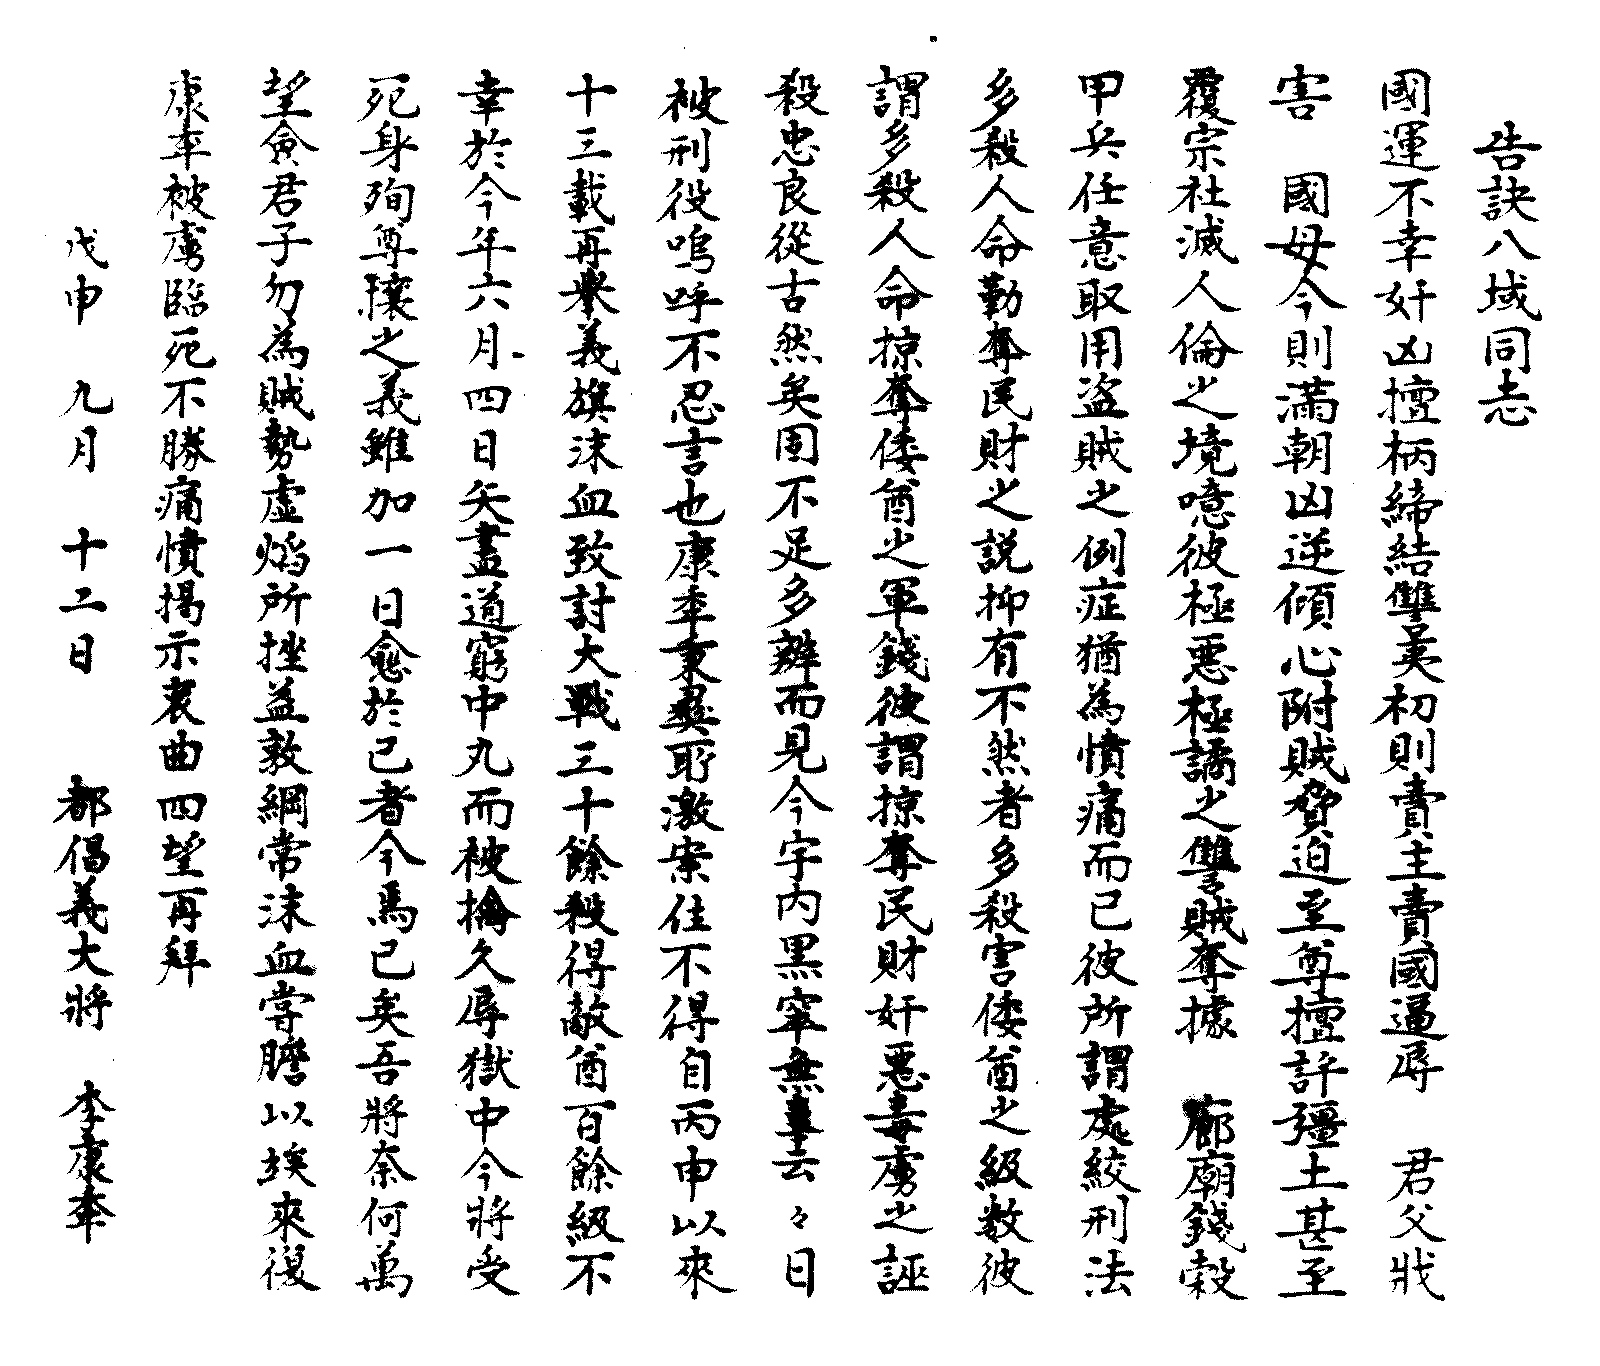 告訣八域同志
國運不幸奸凶擅柄締結讐吴初則賣主賣國逼辱　君父戕
害　國母今則滿朝凶逆傾心附賊脅迫至尊擅許疆土甚至
覆宗社滅人倫之境噫彼極惡極譎之讐賊奪據　廊廟錢穀
甲兵任意取用盗賊之例症猶為憤痛而已彼所謂處絞刑法
多殺人命勒奪民財之説抑有不然者多殺害倭酋之級数彼
謂多殺人命掠奪倭酋之軍錢彼謂掠奪民財奸惡毒虜之誣
殺忠良從古然矣固不足多辨而見今宇内黑窣無晝云々日
被刑役嗚呼不忍言也康秊秉彛所激案住不得自丙申以來
十三載再擧義旗沫血致討大戰三十餘殺得敵酋百餘級不
幸於今年六月四日矢盡道窮中丸而被擒久辱獄中今將受
死身殉尊攘之義雖加一日愈於已者今焉已矣吾將奈何萬
望僉君子勿為賊勢虚焰所挫益敦綱常沫血嘗膽以俟來復
康秊被虜臨死不勝痛憤揭示衷曲四望再拜
戊申　九月　十二日　都倡義大將　李康秊